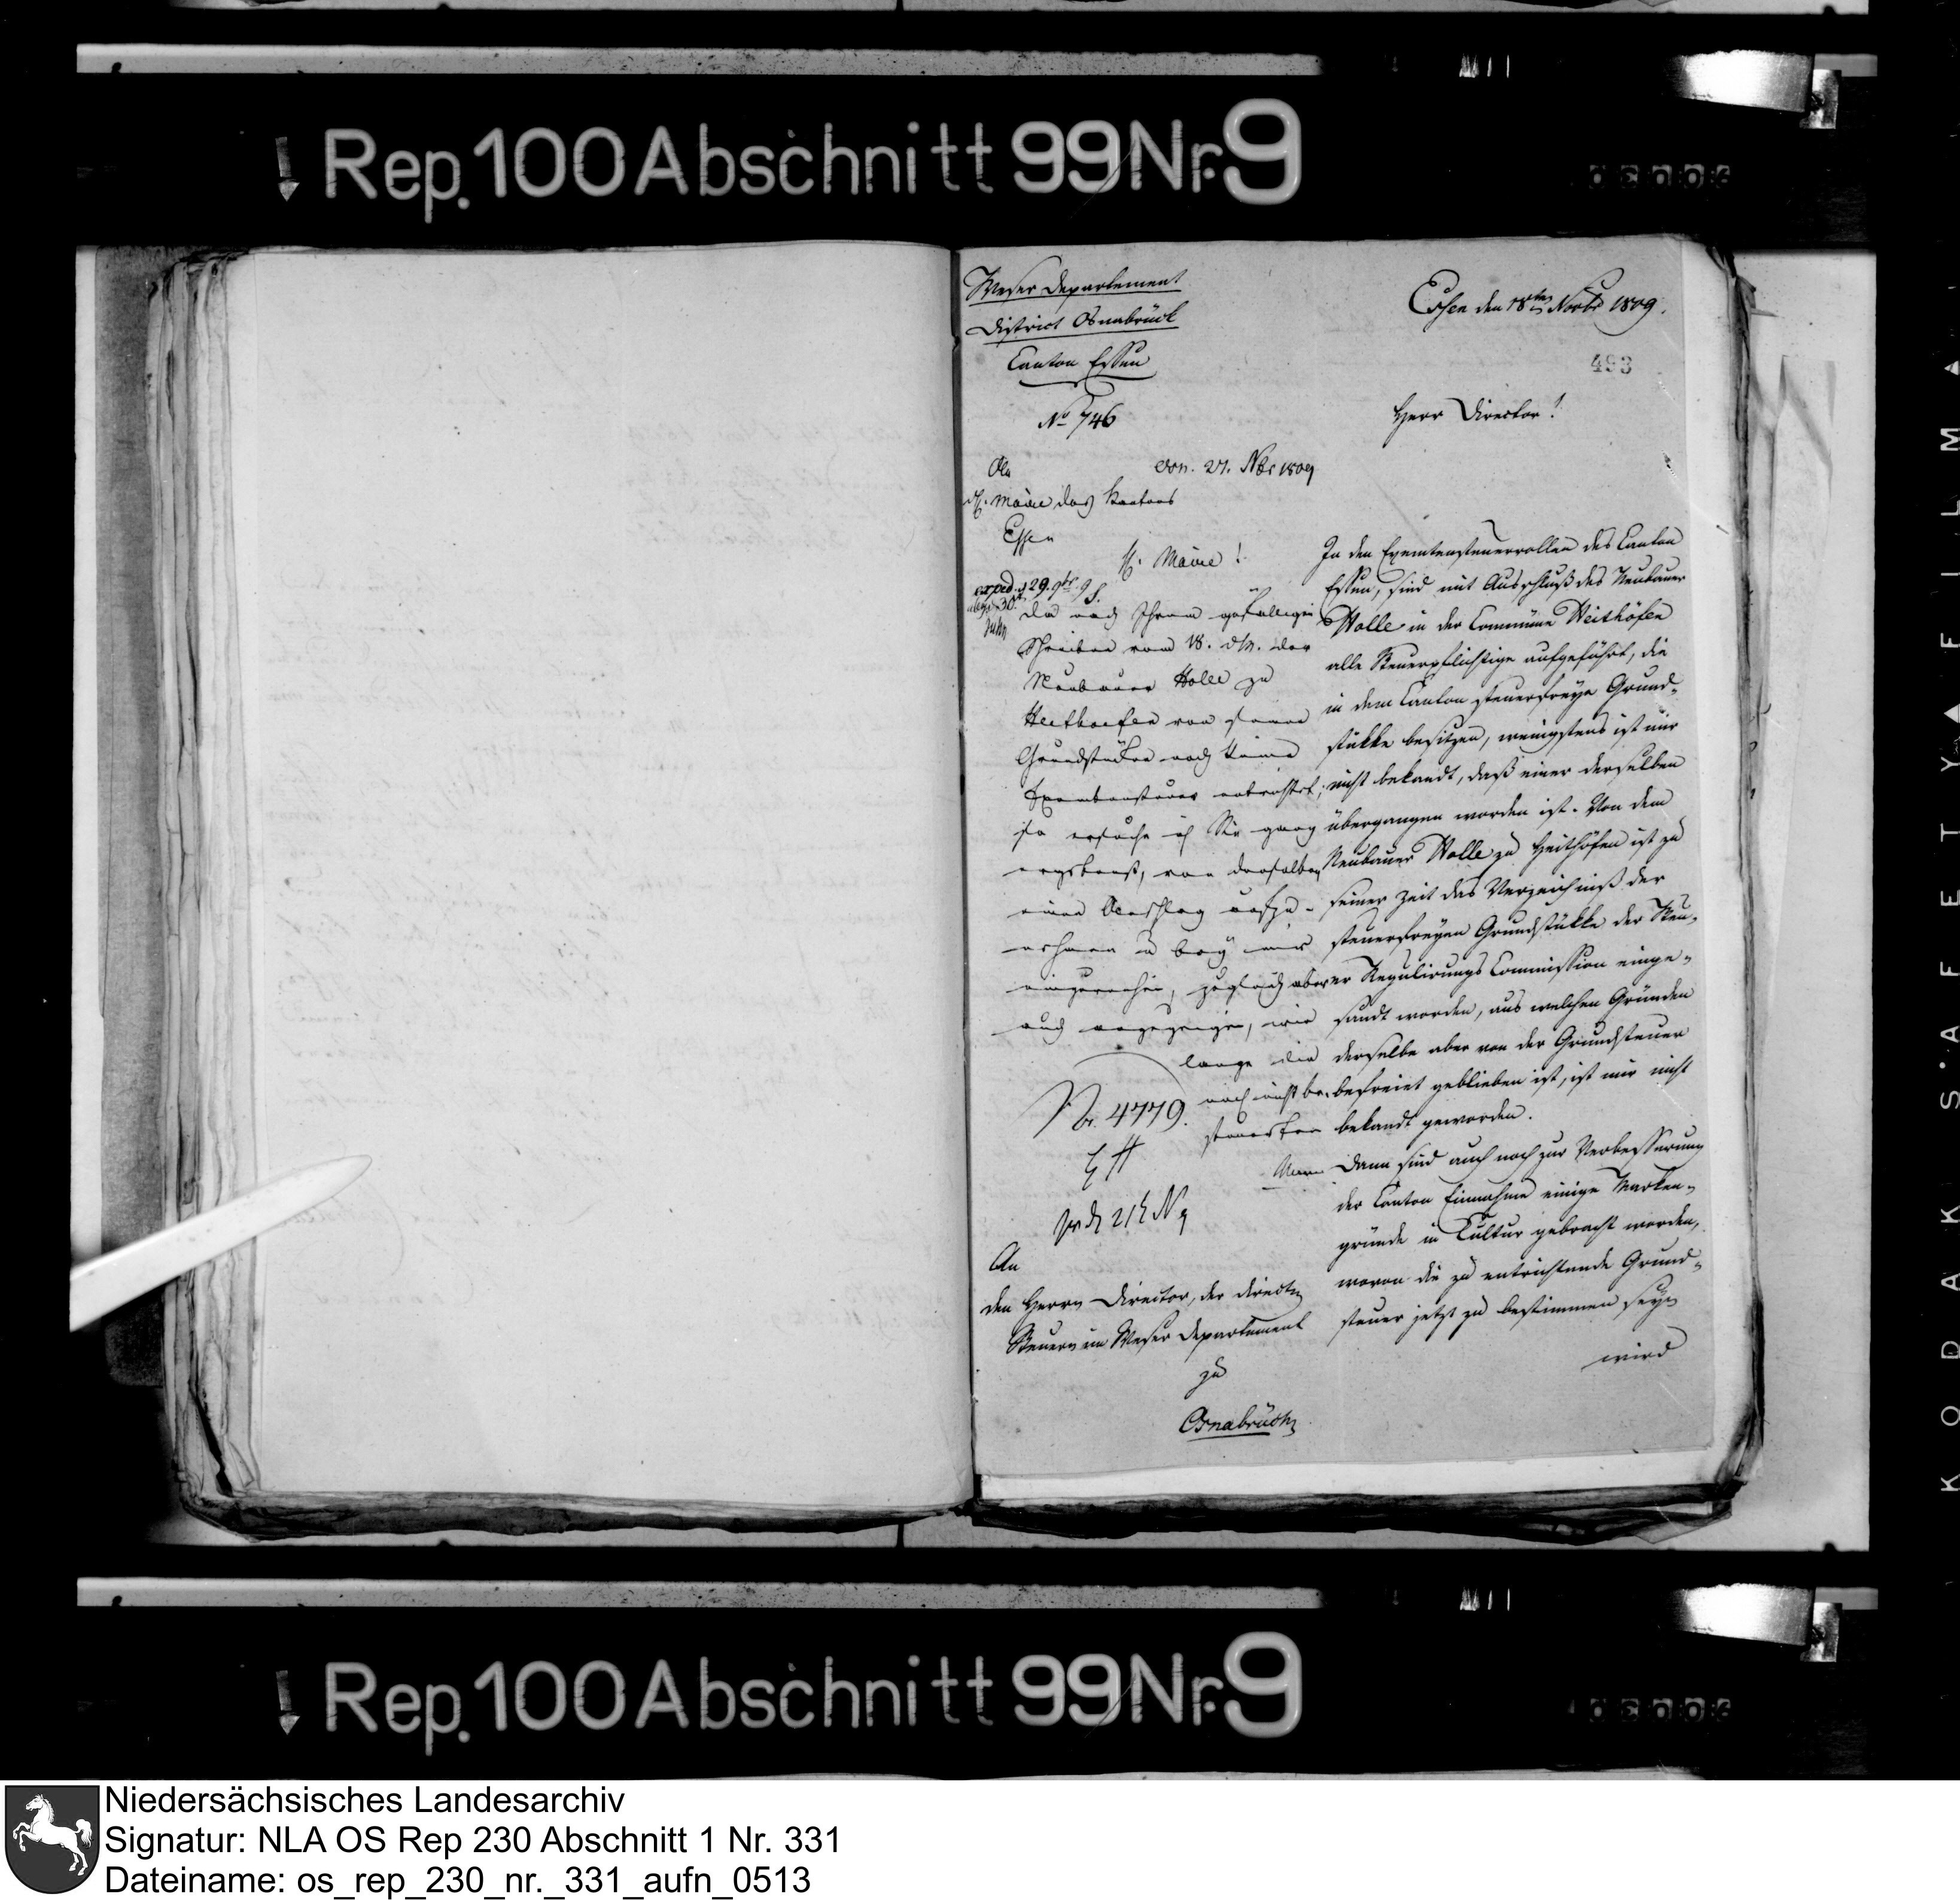 Rep. 100 Abschnitt 99 Nr. 9
Weser Departement
District Osnabrück
Canton Essen
No 746
Essen den 18ten Novbr 1809.
493
Herr Director!
In den Exemtensteuerrollen des Canton
Essen, sind mit Ausschluß des Neubauer
Holle in der Commüne Heithöfen
alle Steuerpflichtige aufgeführt, die
in dem Canton steuerfreye Grund-
stükke besitzen, wenigstens ist mir
nicht bekandt, daß einer derselben
übergangen worden ist. Von dem
Neubauer Holle zu Heithöfen ist zu
seiner Zeit das Verzeichniß der
steuerfreyen Grundstükke der Steu-
er Regulirungs Commission einge-
sandt worden, aus welchen Gründen
derselbe aber von der Grundsteuer
befreiet geblieben ist, ist mir nicht
bekandt geworden.
Dann sind auch noch zur Verbesserung
der Canton Einnahme einige Marken-
gründe in Cultur gebracht worden,
wovon die zu entrichtende Grund-
steuer jetzt zu bestimmen seyn
wird
An
den Herrn Director, der directen
Steuern im Weser Departement
zu
Osnabrück
27. Nbr 1809
An
H. Maire des Kantons
Essen
H. Maire!
exped. 29. 9br. 9
Da nach Ihrem gefälligen
Schreiben vom 18. d. M. der
Neubauer Holle zu
Heithoefen von seinen
Grundstücken noch keine
Exemtensteuer entrichtet,
so ersuche ich Sie ganz
ergebenst, von denselben
einen Anschlag aufzu-
nehmen u bey mir
einzureichen, zugleich aber
auch anzuzeigen, wie
lange die
noch nicht be-
steuerten
Nr. 4779.
Rep. 100 Abschnitt 99 Nr. 9
KODAK SAFETY FILM
Niedersächsisches Landesarchiv
Signatur: NLA OS Rep 230 Abschnitt 1 Nr. 331
Dateiname: os_rep_230_nr._331_aufn_0513